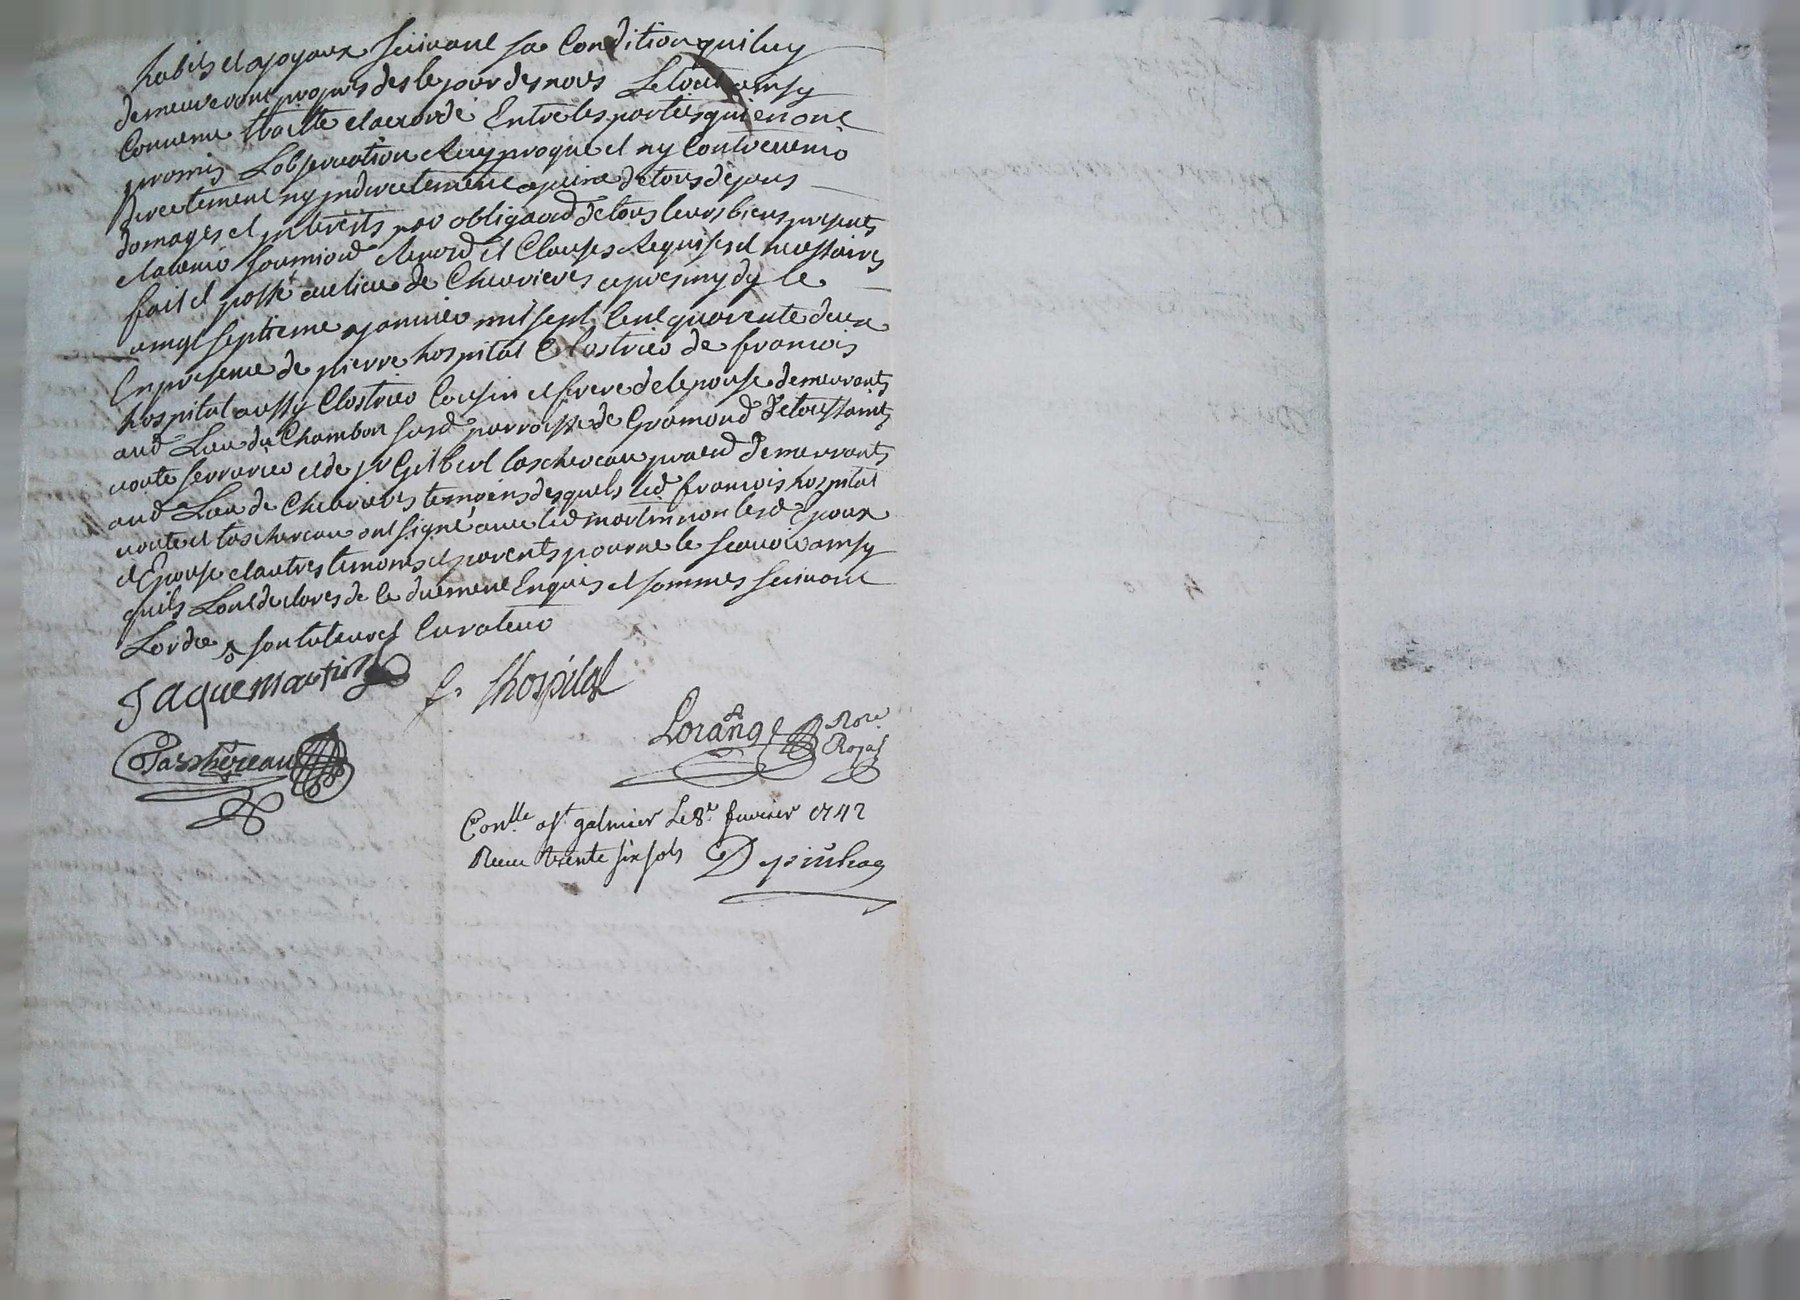 habits et ajoyaux suivant sa Condition qui luy
demeureront propres des le jour des noces Letout ainsy
Convenu traitté et acordé Entre les parties qui en ont
promis Lobservation Reciproque et ny Contrevenir
directement ny jndirectement a peine de tous depans
domages et jnterests par obligaod de tous leurs biens presents
et avenir soumiod Renord et Clauses Requises et necessaires
fait et passé au lieu de Chevrieres apres mydy le
vingt septieme janvier mil sept Cent quarente deux
En presence de pierre hospital Clostrier de francois
hospital aussy Clostrier Cousin et frere de lepouse demeurants
aud Lieu du Chambon susd parroisse de Gramond de toussaints
voute serrurier et de jr Gilbert taschereau pratd demeurants
aud Lieu de Chevrieres temoins desquels led francois hospital
voute et taschereau ont signé avec led martin non lesd Epoux
et Epouse et autres temoins et parents pour ne le scavoir ainsy
quils Lont declarés de ce duement Enquis et sommes suivant
Lordce son tuteur et Curateur
Jaque Martin
f. hospital
Lorange Nore Royal
Taschereau
Conlle a st galmier Le 8e fevrier 1742
Receu trente six sols Depinhac